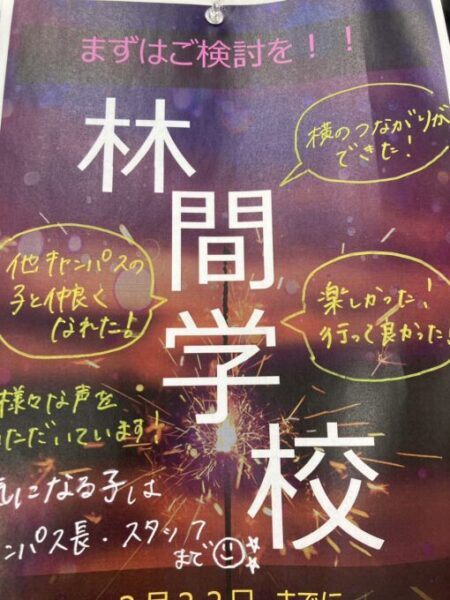 まずはご検討を！！
林間学校
横のつながりが
できた！
他キャンパスの
子と仲良く
なれた！
楽しかった！
行って良かった！
様々な声を
ただいています！
気になる子は
ンパス長・スタッフ
まで
月２２日 までに